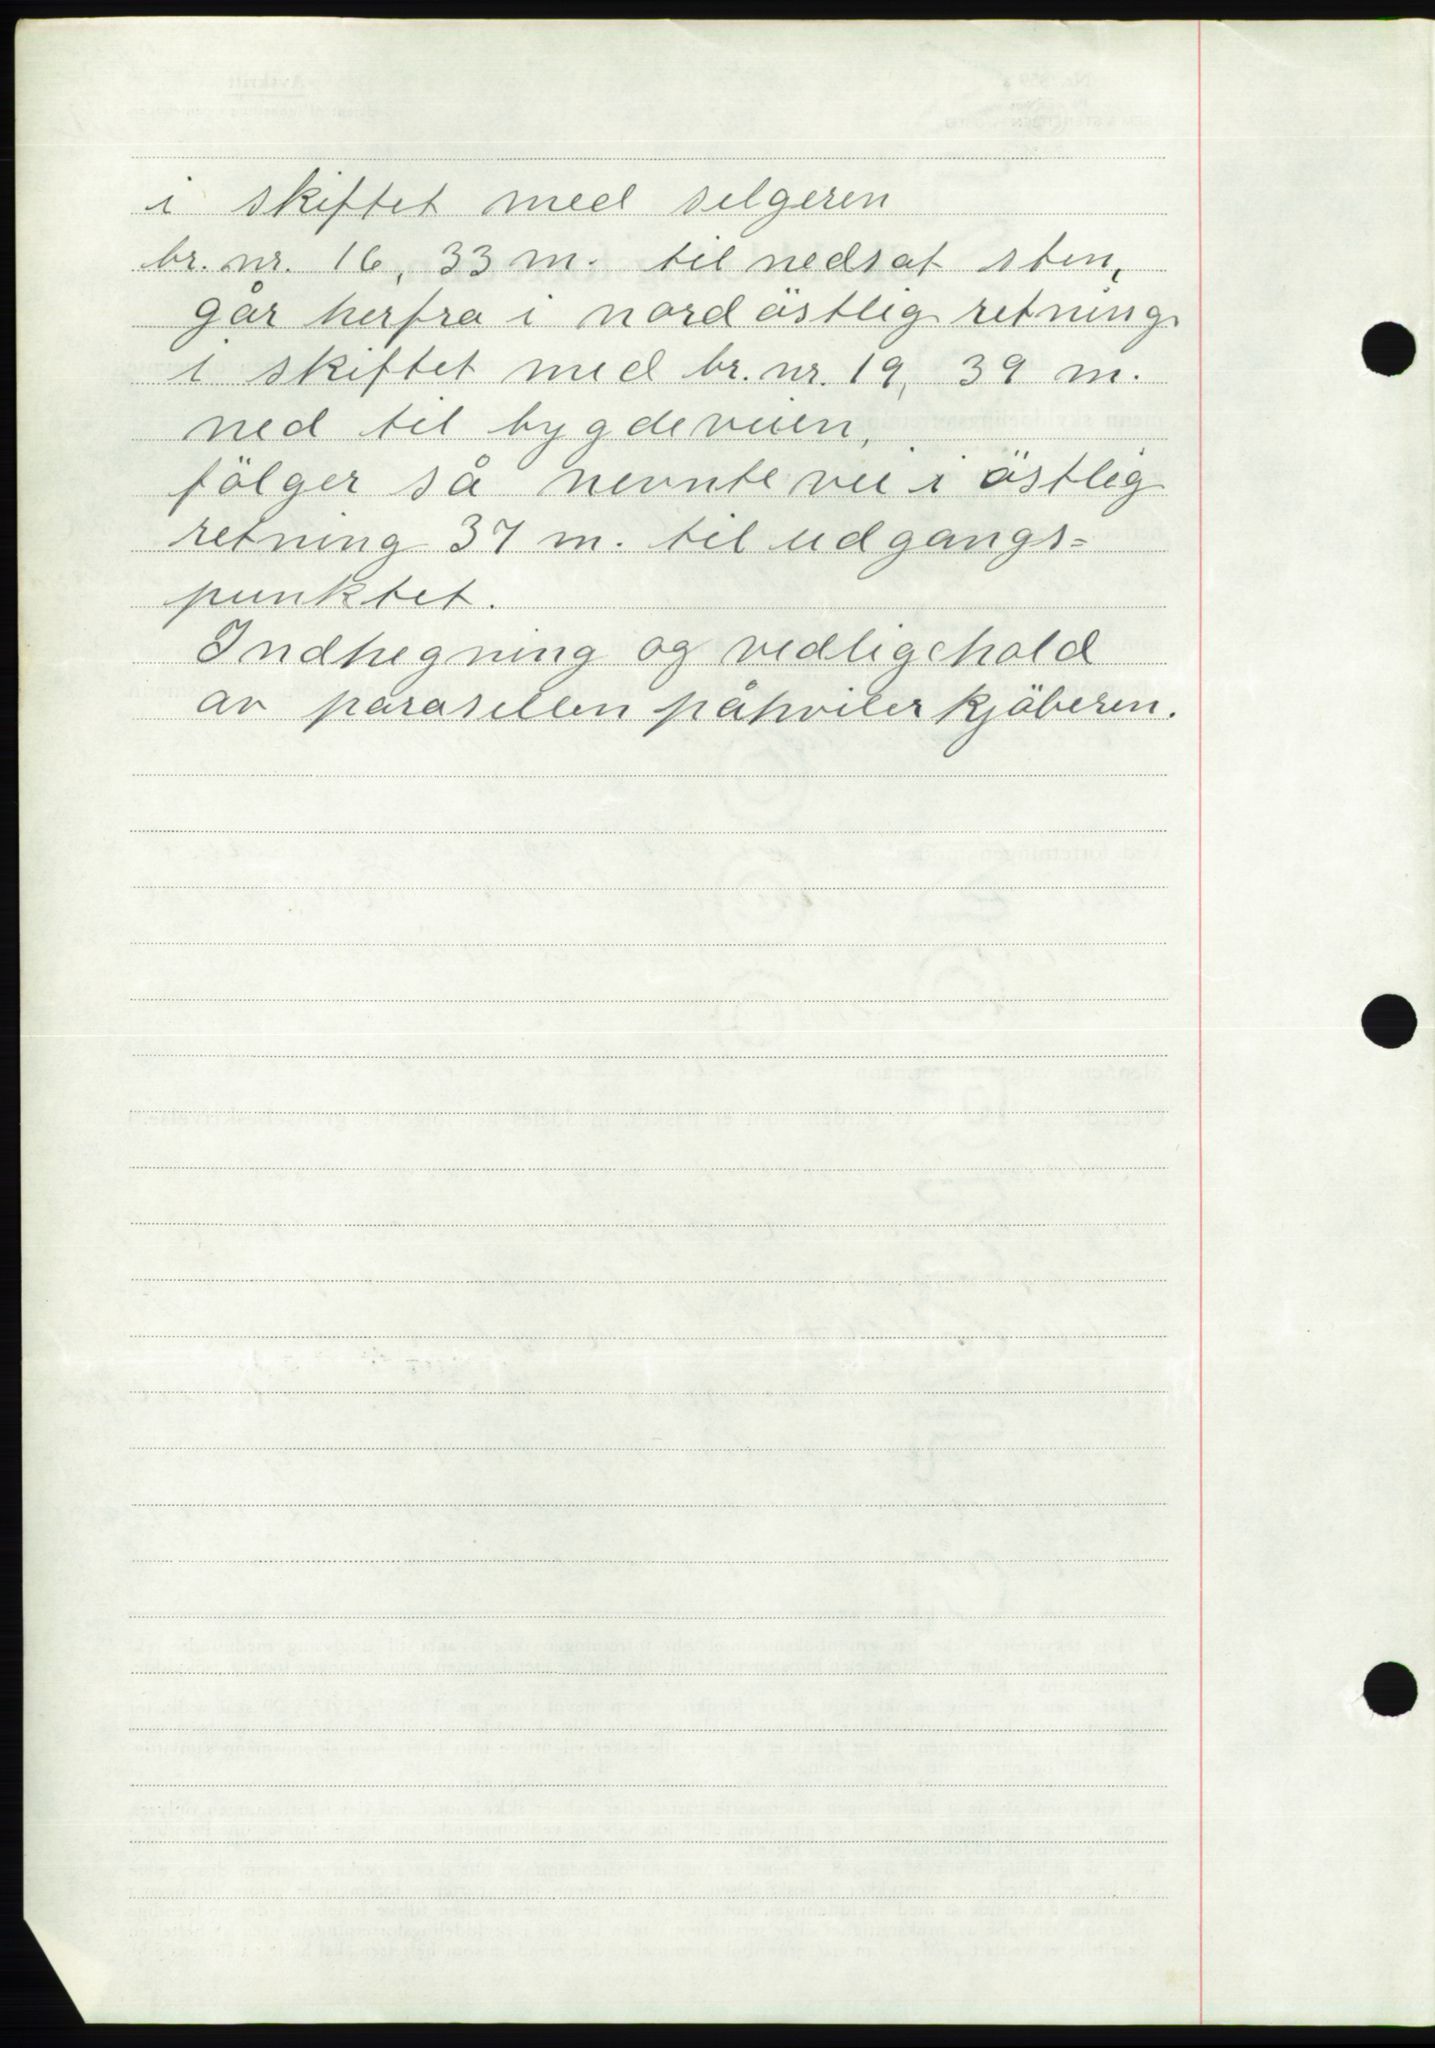 i skiftet med selgeren
br. nr. 16, 33 m. til nedsat sten,
går herfra i nordöstlig retning
i skiftet med br. nr. 19, 39 m.
ned til bygdeveien,
fölger så nevnte vei i östlig
retning 37 m. til udgangs=
punktet.
Indhegning og vedligehold
av parasellen påhviler kjöberen.